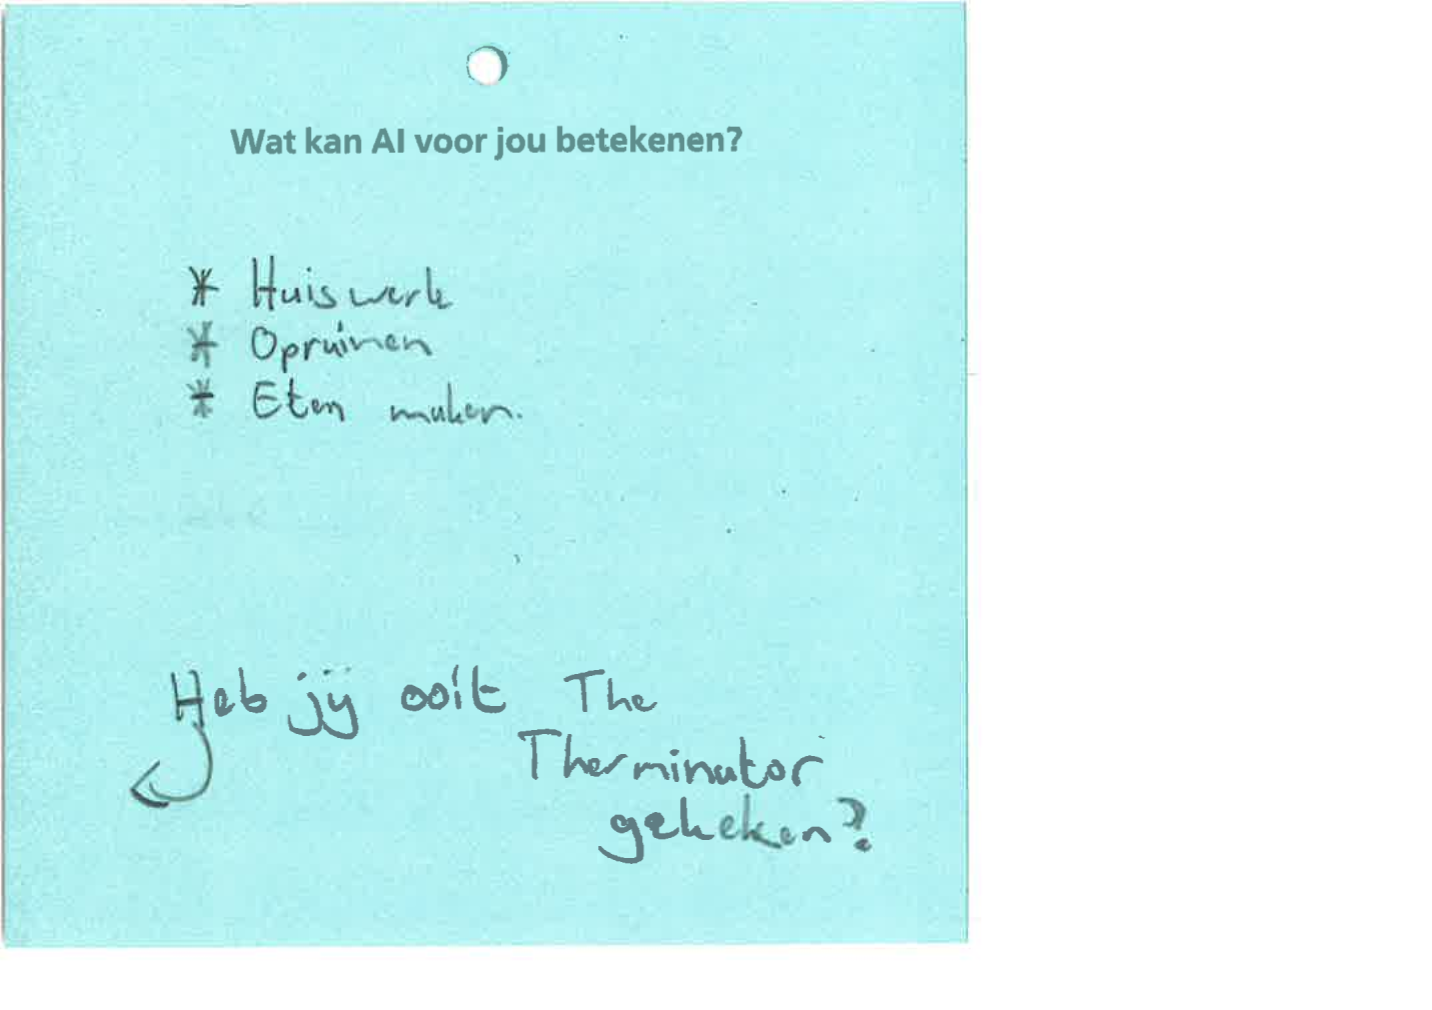 Wat kan AI voor jou betekenen?
* Huiswerk
* Opruimen
* Eten maken.
Heb jij ooit The
Therminator
gekeken?